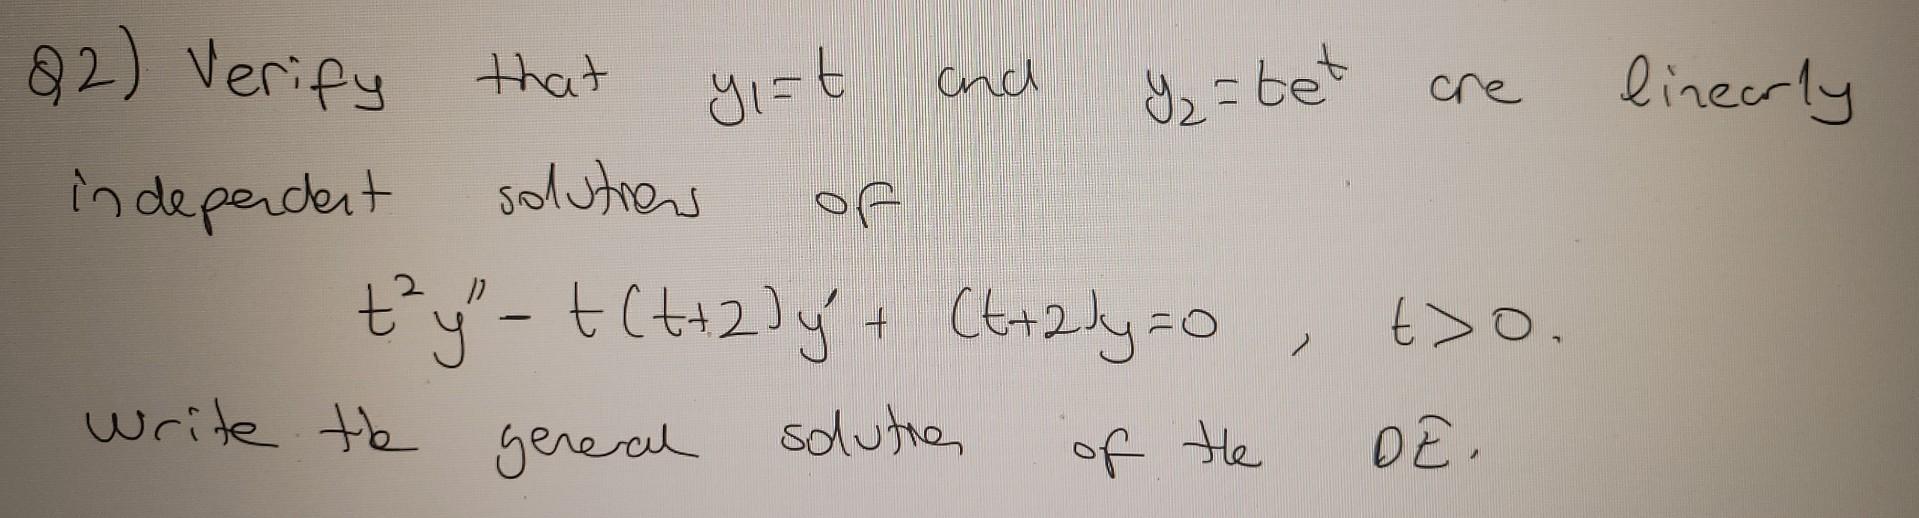 Q2) Verify that y₁=t and y₂=teᵗ are linearly
independent solutions of
t²y″ - t(t+2)y′ + (t+2)y=0 , t>0.
Write the general solution of the DE.